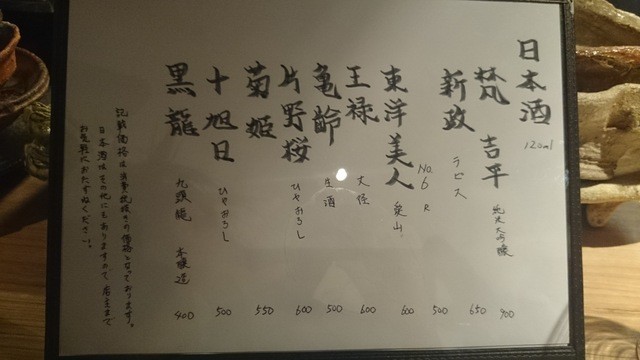 日本酒 120ml
梵 吉平 純米大吟醸 900
新政 ラピス 650
No.6 R 500
東洋美人 愛山 600
王祿 丈径 600
亀齢 生酒 500
片野桜 ひやおろし 600
菊姫 550
十旭日 ひやおろし 500
黒龍 九頭龍 本醸造 400
記載価格は消費税抜きの価格となっております。
日本酒はその他にもありますので、店主まで
お気軽におたずねください。